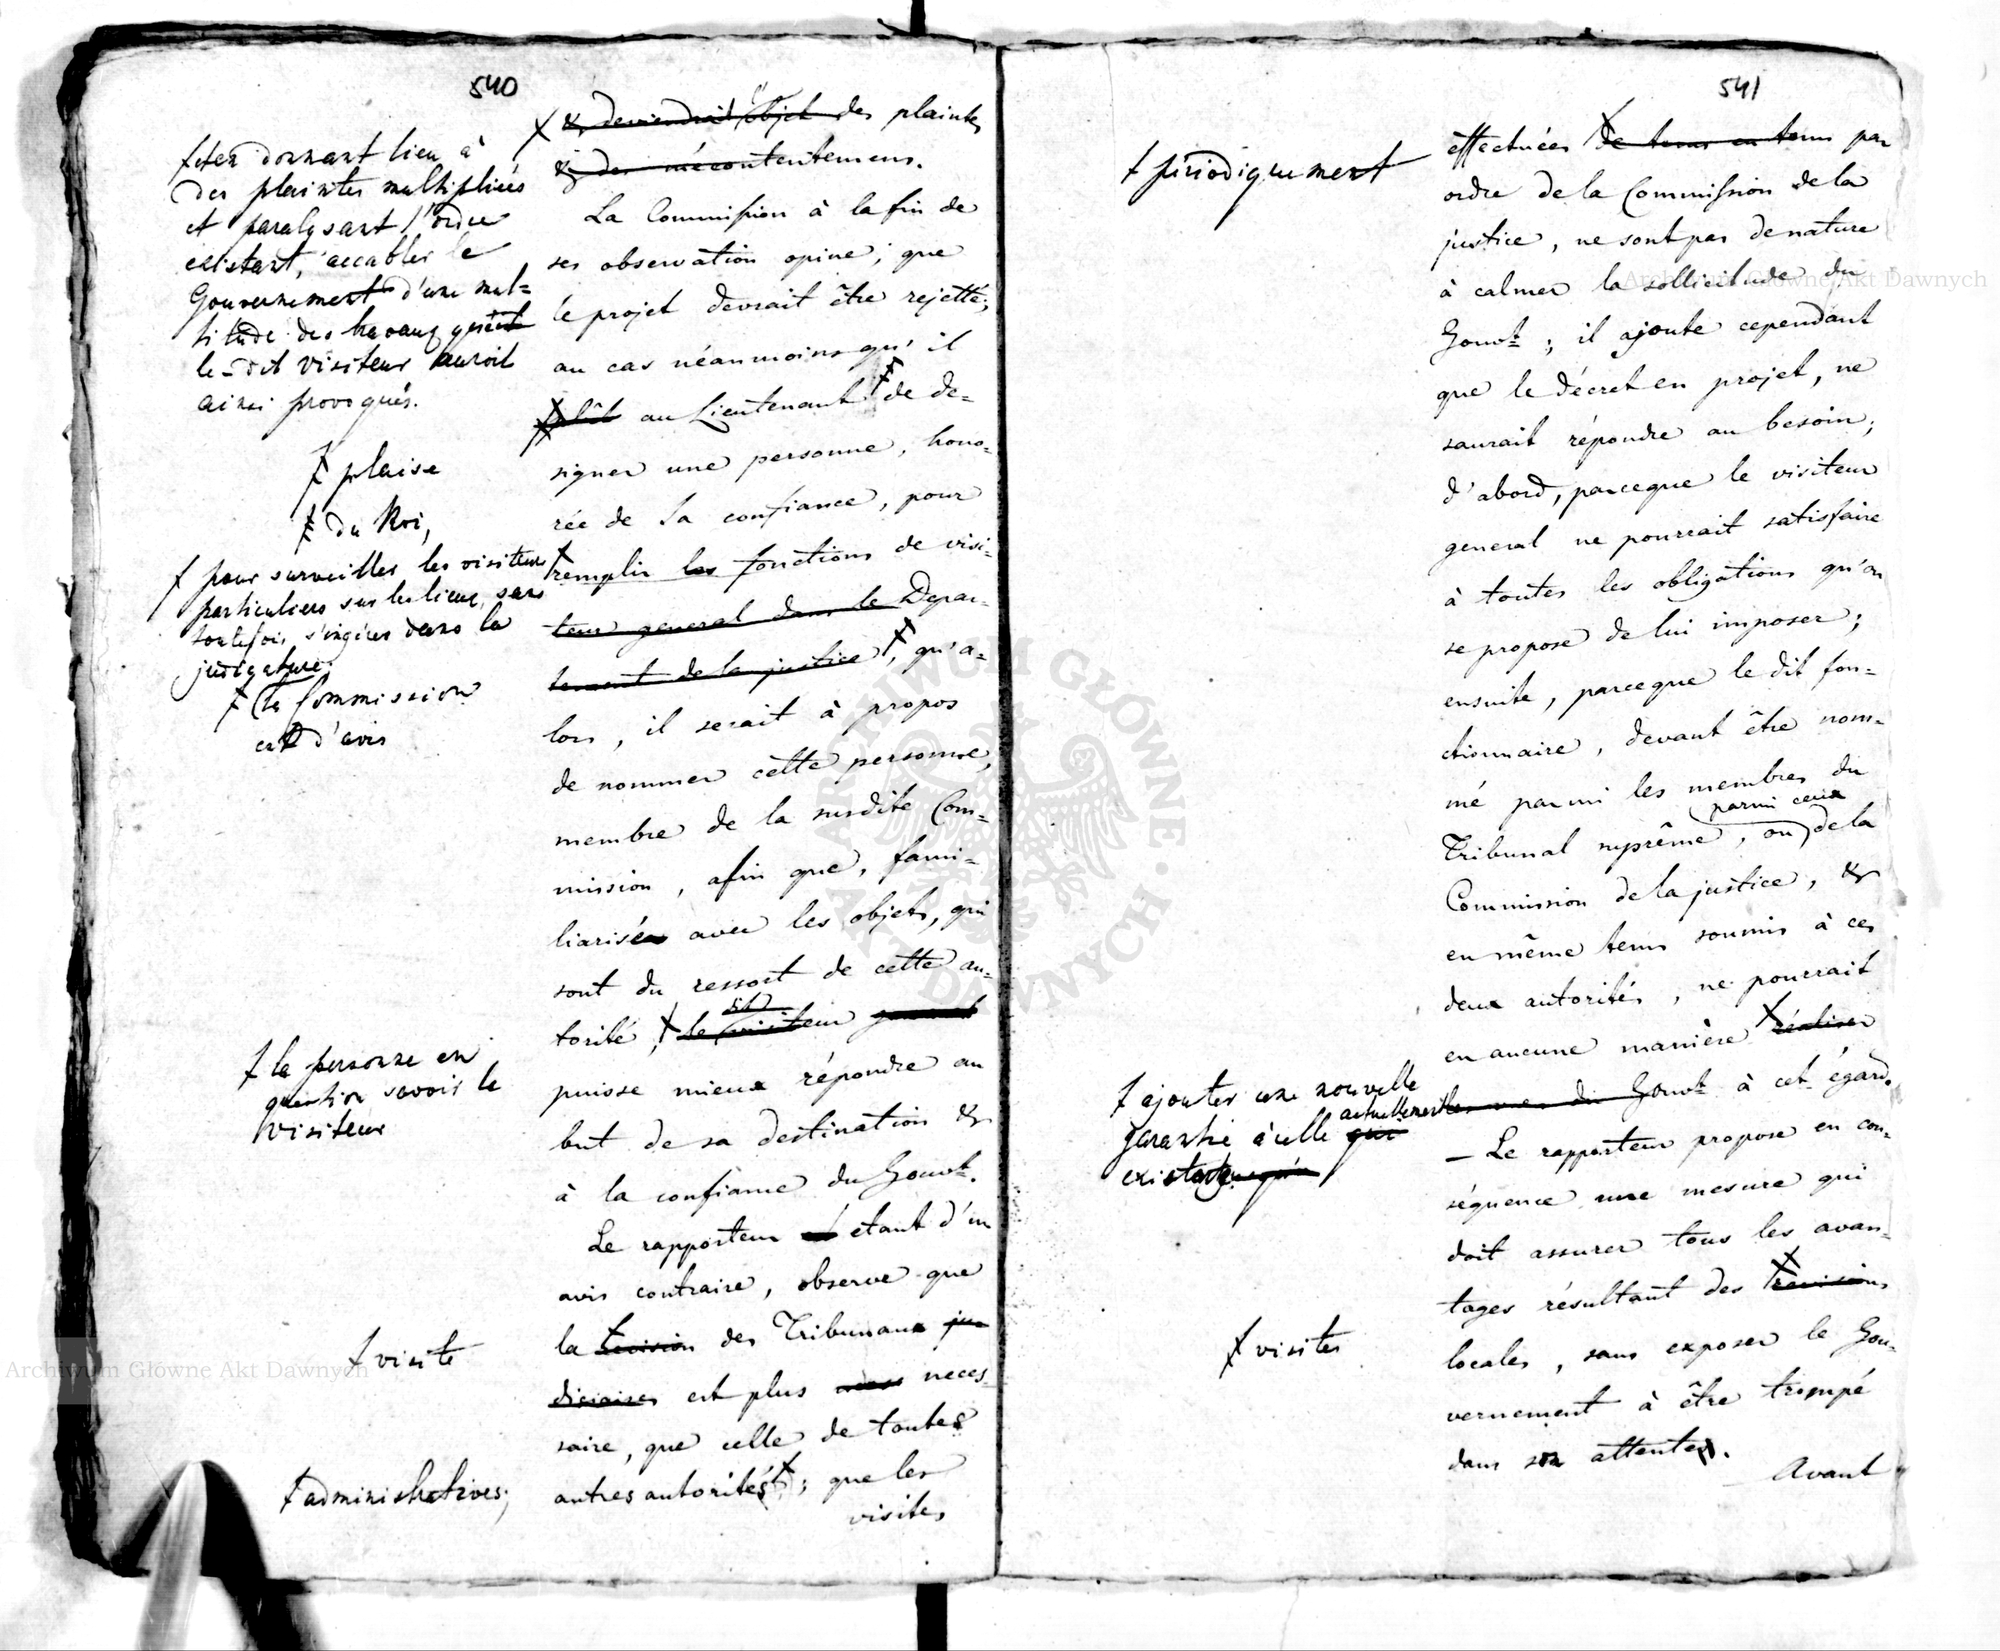 540
┼ et en donnant lieu à
des plaintes multipliées
et paralysant l'ordre
existant, accabler le
Gouvernement d'une mul=
titude des travaux
le-dit visiteur auroit
ainsi provoqués.
┼ plaise
┼ du Roi,
┼ pour surveiller les visiteurs
particuliers sur les lieux, sans
toutefois s'ingérer dans la
judicature.
┼ la Commission
est d'avis
┼ la personne en
question savoir le
visiteur
┼ visite
┼ administratives;
& deviendrait l'objet des plaintes
& des mécontentemens.
La Commission à la fin de
ses observation opine; que
le projet devrait être rejetté;
au cas néanmoins qu'il
plût au Lieutenant ┼ de de=
signer une personne, hono=
rée de sa confiance, pour
remplir les fonctions de visi=
teur general dans le Depar=
tement de la justice ┼, qu'a=
lors, il serait à propos
de nommer cette personne,
membre de la susdite Com=
mission, afin que, fami=
liarisée avec les objets, qui
sont du ressort de cette au=
torité, ┼ le visiteur general
puisse mieux répondre au
but de sa destination &
à la confiance du Gouvt.
Le rapporteur etant d'un
avis contraire, observe que
la revision des Tribunaux ju=
diciaires est plus neces=
saire, que celle de toutes
autres autorités ┼; que les
visites
541
┼ périodiquement
┼ ajouter une nouvelle
garantie à celle qui actuellement
existe
┼ visites
effectuées de tems en tems par
ordre de la Commission de la
justice, ne sont pas de nature
à calmer la sollicitude du
Gouvt; il ajoute cependant
que le décret en projet, ne
saurait répondre au besoin;
d'abord, parceque le visiteur
general ne pourrait satisfaire
à toutes les obligations qu'on
se propose de lui imposer;
ensuite, parceque le dit fon=
ctionnaire, devant être nom=
mé parmi les membres du
parmi ceux
Tribunal suprême, ou de la
Commission de la justice, &
en même tems soumis à ces
deux autorités, ne pourrait
en aucune manière réaliser
les vues du Gouvt à cet égard.
— Le rapporteur propose en con=
séquence une mesure qui
doit assurer tous les avan=
tages résultant des revisions
locales, sans exposer le Gou=
vernement à être trompé
dans son attente.
Avant
Archiwum Główne Akt Dawnych
Archiwum Główne Akt Dawnych
ARCHIWUM GŁÓWNE · AKT DAWNYCH ·